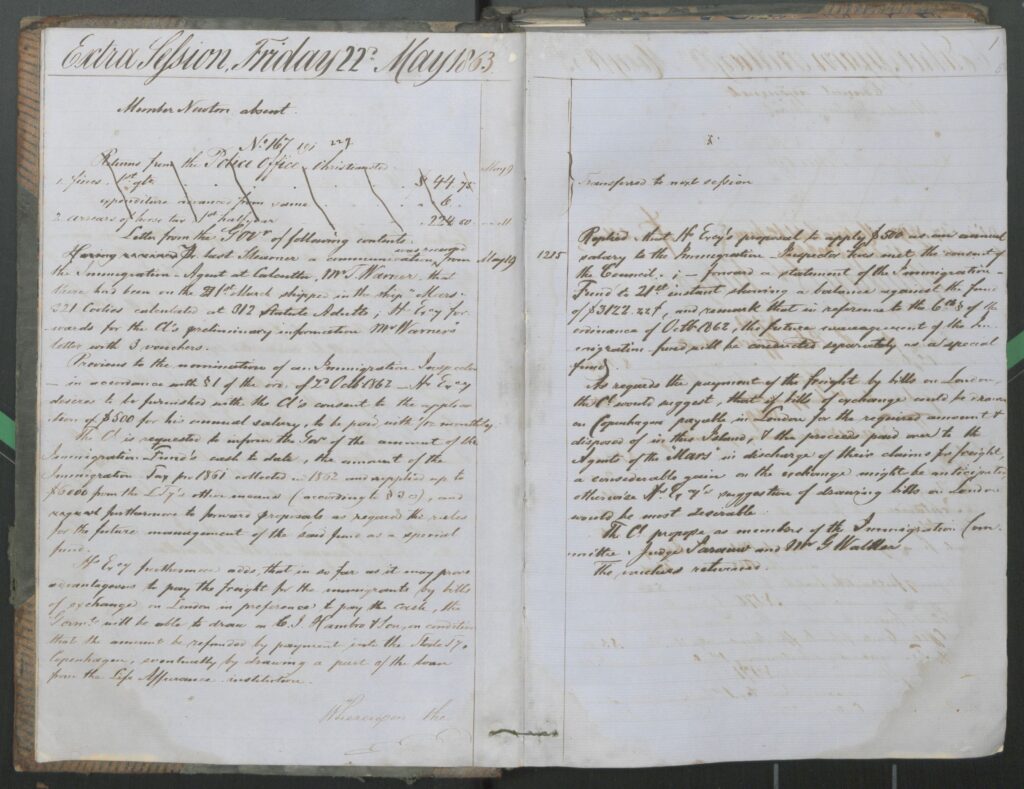 Extra Session, Friday 22d May 1863.
Member Newton absent.
No 167
Returns from the Police Office Christiansted
1. fines 1st qtr. $ 44.75
expenditure received from same " 6.
2. arrears of horse tax 1st halfyear " 224.60
Letter from the Govr of following contents
Having received per last Steamer a communication from
the Immigration Agent at Calcutta, Mr Warner, that
there has been on the 21st March shipped in the ship "Mars",
321 Coolies calculated at 312 Statute Adults, Hs Excy for-
wards for the Cl's preliminary information Mr Warner's
letter with 3 vouchers.
Previous to the nomination of an Immigration Inspector
– in accordance with §1 of the ord. of 2d Octb 1862 – Hs Excy
desires to be furnished with the Cl's consent to the applica-
tion of $500 for his annual salary, to be paid with for monthly
The Cl is requested to inform the Gov of the amount of the
Immigration Fund's cash to date, the amount of the
Immigration Tax for 1861 collected in 1862 and applied up to
$6000 from the other means (according to § 30), and
request furthermore to forward proposals as regards the rules
for the future management of the said fund as a special
fund.
Hs Excy furthermore adds, that in so far as it may prove
advantageous to pay the freight for the immigrants by bills
of exchange on London in preference to pay the cash, the
Governmt will be able to draw on C. J. Hambro & Son, on condition
that the amount be refunded by payment into the
Copenhagen, eventually by drawing a part of the loan
from the Life Assurance institution.
Whereupon the
May 9
May 19
1215
1
Transferred to next session
Replied that Hs Excy's proposal to apply $500 as an annual
salary to the Immigration Inspector has met the consent of
the Council; – forward a statement of the Immigration –
Fund to 21st instant showing a balance against the fund
of $3122.22¢, and remark that in reference to the 6th § of the
ordinance of Octb 1862, the future management of the Im-
migration fund will be conducted separately as a special
fund
As regards the payment of the freight by bills on London,
the Cl would suggest, that if bills of exchange could be drawn
on Copenhagen payable in London for the required amount &
disposed of in this Island, & the proceeds paid over to the
Agents of the "Mars" in discharge of their claims for freight,
a considerable gain on the exchange might be anticipated,
otherwise Hs Excy's suggestion of drawing bills on London
would be most desirable.
The Cl propose as members of the Immigration Com-
mittee: Judge Sarauw and Mr G Walker
The vouchers returned.